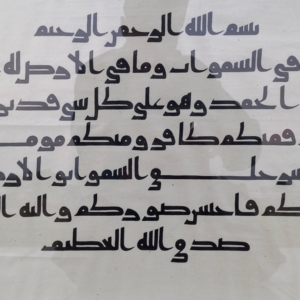 بسم الله الرحمن الرحيم
في السموات وما في الارض له
الحمد وهو على كل شي قدير
فمنكم كافر ومنكم مومن
خلق السموات والارض
كم فاحسن صوركم واليه ا
صدق الله العظيم